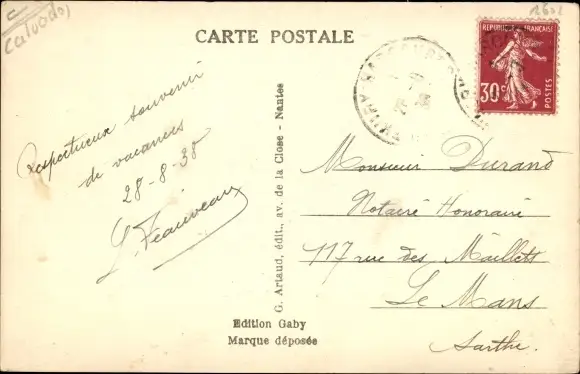 (Calvados)
CARTE POSTALE
RÉPUBLIQUE FRANÇAISE
30c
POSTES
Respectueux souvenir
de vacances
28-8-38
G. Artaud, édit., av. de la Close - Nantes
Monsieur Durand
Notaire Honoraire
117 rue des Maillets
Le Mans
Sarthe.
Edition Gaby
Marque déposée